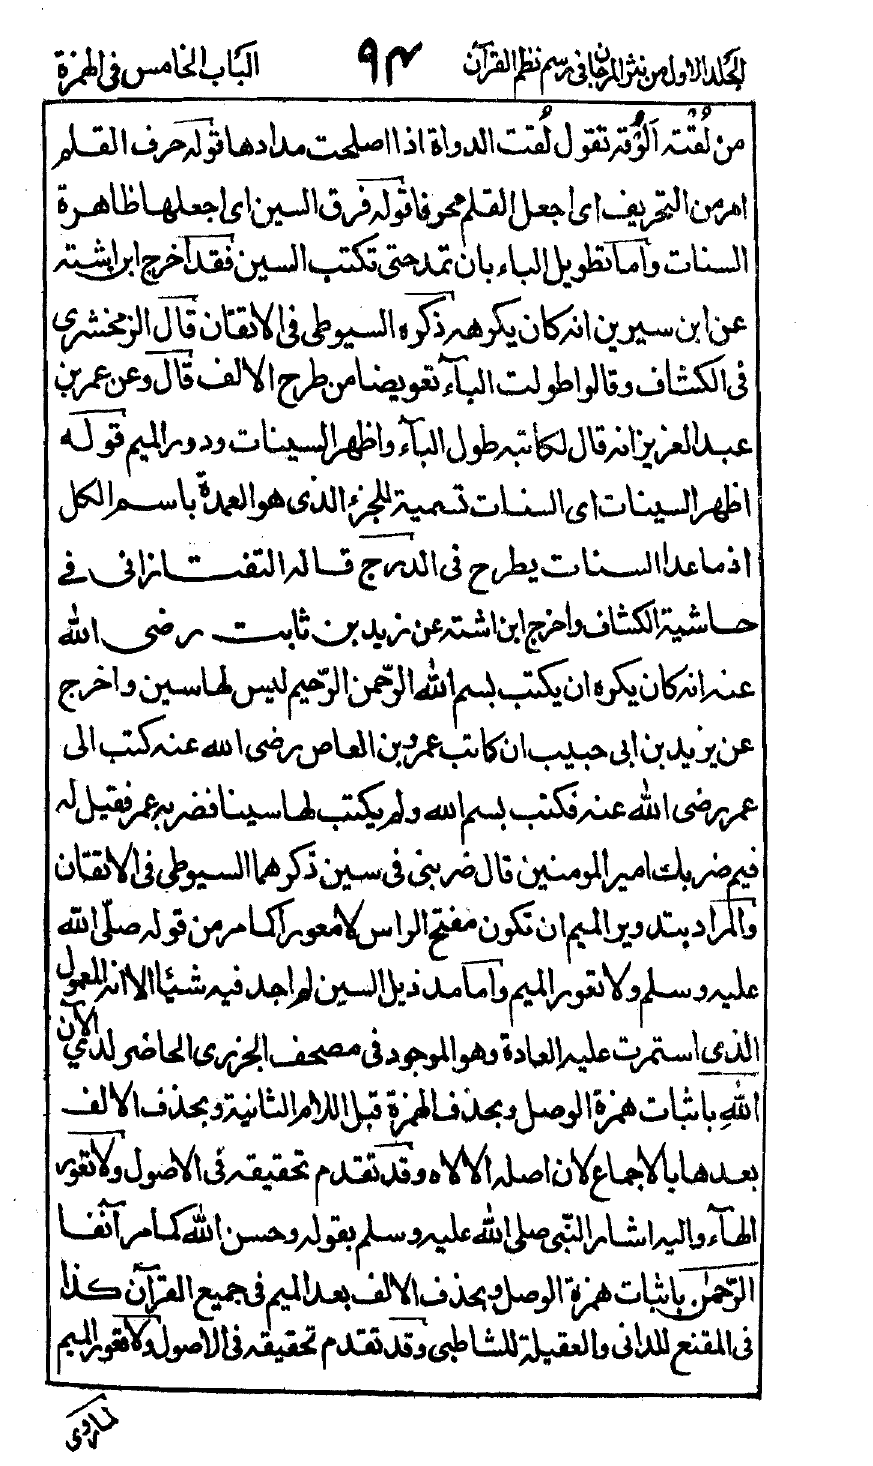 الجلد الاول من نثر المرجان فی رسم نظم القرآن ٩٤ الباب الخامس فی الهمزة
من لُقْتُه اَلُوْقه تقول لُقت الدواة اذا اصلحت مدادها قوله حرف القلم
امر من التحريف ای اجعل القلم محرفا قوله فرق السين ای اجعلها ظاهرة
السنات واما تطويل الباء بان تمد حتى تكتب السين فقد اخرج ابن اشته
عن ابن سيرين انه كان يكرهه ذكره السيوطی فی الاتقان قال الزمخشری
فی الكشاف وقالوا طولت الباء تعويضا من طرح الالف قال وعن عمر بن
عبد العزيز انه قال لكاتبه طول الباء واظهر السينات ودور الميم قوله
اظهر السينات ای السنات تسمية للجزء الذی هو العمدة باسم الكل
اذ ما عدا السنات يطرح فی الدرج قاله التفتازانی فے
حاشية الكشاف واخرج ابن اشته عن زيد بن ثابت رضی الله
عنه انه كان يكره ان يكتب بسم الله الرّحمن الرّحيم ليس لها سين واخرج
عن يزيد بن ابی حبيب ان كاتب عمرو بن العاص رضی الله عنه كتب الی
عمر رضی الله عنه فكتب بسم الله ولم يكتب لها سينا فضربه عمر فقيل له
فيم ضربك امير المومنين قال ضربنی فی سين ذكرهما السيوطی فی الاتقان
والمراد بتدوير الميم ان تكون مفتح الراس لا معورا كما مر من قوله صلّی الله
عليه وسلم ولا تعور الميم واما مد ذيل السين لم اجد فيه شيئا الا انه المعمول
الذی استمرت عليه العادة وهو الموجود فی مصحف الجزری الحاضر لدیّ الآن
اللهِ باثبات همزة الوصل وبحذف الهمزة قبل اللام الثانية وبحذف الالف
بعدها بالاجماع لان اصله الالاه وقد تقدم تحقيقه فی الاصول ولا تعور
الهآء واليه اشار النّبی صلی الله عليه وسلم بقوله وحسن الله كما مر آنفا
الرّحمٰن باثبات همزة الوصل وبحذف الالف بعد الميم فی جميع القرآن كذا
فی المقنع للدانی والعقيلة للشاطبی وقد تقدم تحقيقه فی الاصول ولا تعور الميم
لما روی